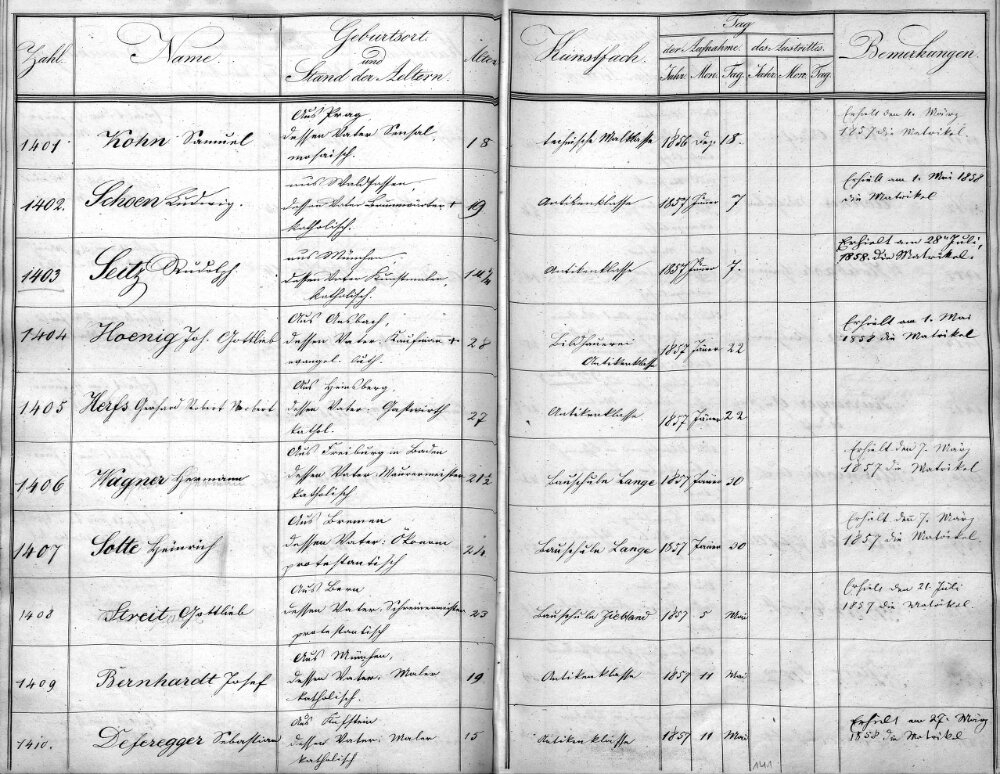 Zahl
Name.
Geburtsort
und
Stand der Aeltern.
Alter
Kunstfach.
Tag
der Aufnahme.
des Austrittes.
Jahr
Mon.
Tag
Jahr
Mon.
Tag.
Bemerkungen.
1401
Kohn Samuel
Aus Prag,
dessen Vater Sensal,
mosaisch.
18
technische Malklasse
1856 Dez 18.
Erhält den 4. März
1857 die Matrikel.
1402.
Schoen Ludwig.
dessen Vater
katholisch.
19
Antikenklasse
1857 Jäner 7
Erhielt am 1. Mai 1858
die Matrikel
1403
Seitz Rudolph
aus München,
dessen Vater Kunstmaler,
katholisch.
Antikenklasse
1857 Jäner 7.
Erhielt am 28ten Juli,
1858. die Matrikel.
1404
Hoenig Joh. Gottlieb
Aus Ansbach,
dessen Vater: Kaufmann +
evangel. luth.
28
Bildhauerei
Antikenklasse
1857 Jäner 22
Erhielt am 1. Mai
1858 die Matrikel
1405
Herfs Gerhard Robert Norbert
Aus Heinsberg,
dessen Vater: Gastwirth
kathol.
27
Antikenklasse
1857 Jäner 22
1406
Wagner Hermann
Aus Freiburg in Baden
dessen Vater Maurermeister
katholisch
21½
Bauschule Lange
1857 Jäner 30
Erhält den 7. März
1857 die Matrikel
1407
Sotte Heinrich
Aus Bremen
dessen Vater: Ökonom
protestantisch
24
Bauschule Lange
1857 Jäner 30
Erhält den 7. März
1857 die Matrikel.
1408
Streit Gottlieb
Aus Bern
dessen Vater: Schreinermeister
protestantisch
23
Bauschule Ziebland
1857 5 Mai
Erhielt den 21. Juli
1857 die Matrikel.
1409
Bernhardt Josef
Aus München,
dessen Vater: Maler
katholisch.
19
Antikenklasse
1857 11 Mai
1410.
Deferegger Sebastian
Aus Kufstein
dessen Vater: Maler
katholisch
15
Antikenklasse
1857 11 Mai
Erhielt am 27. März
1858 die Matrikel
141